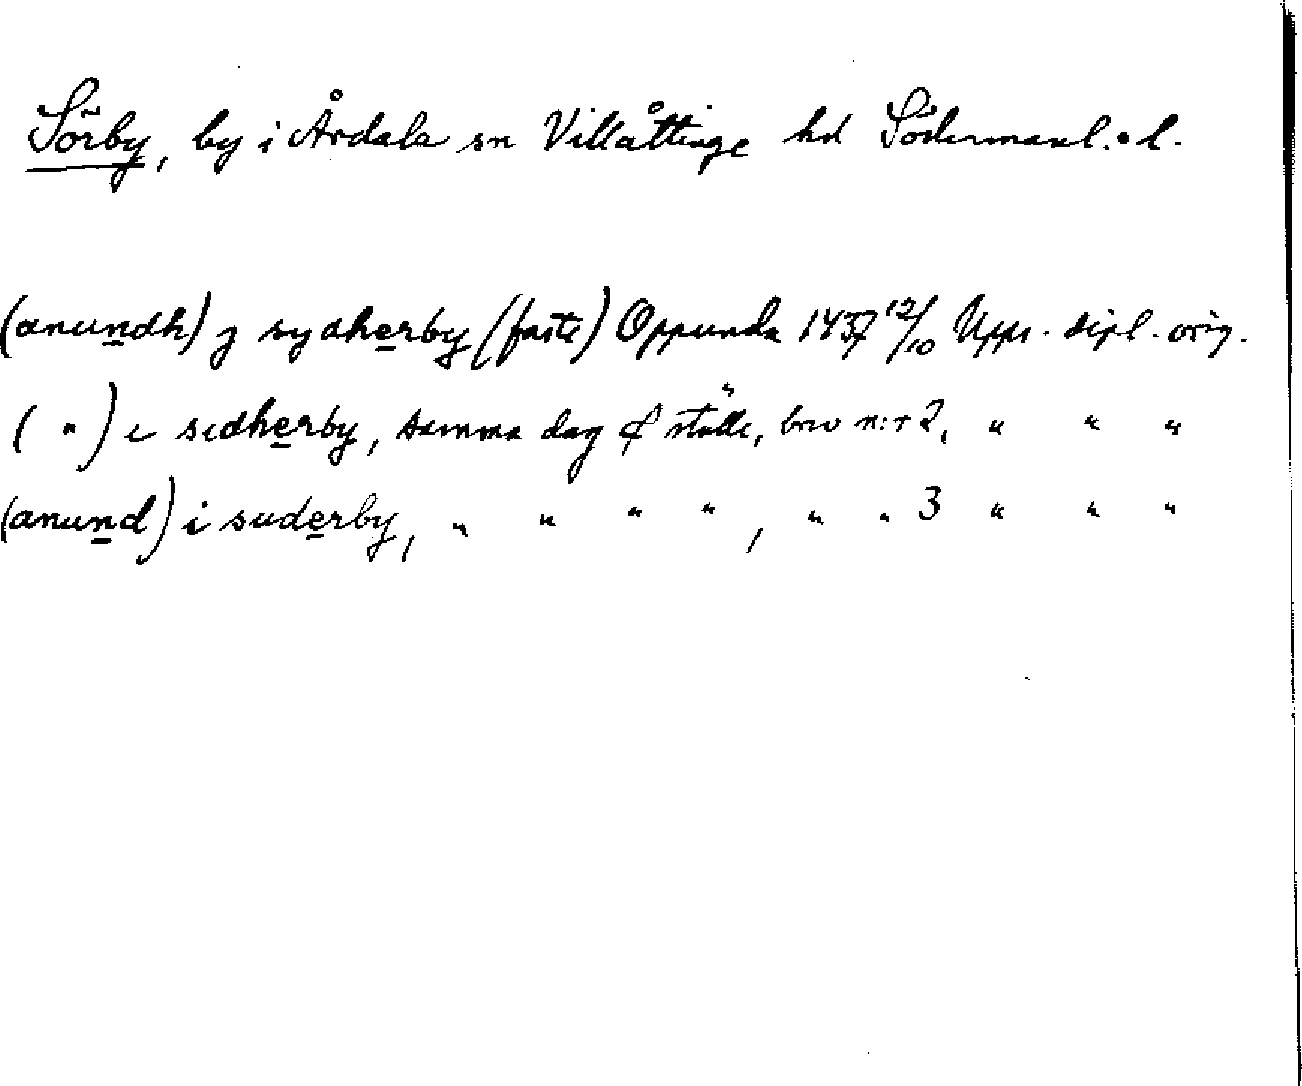 Sörby, by i Årdala sn Villåttinge hd Södermanl. l.
(anundh) j sydherby (faste) Oppunda 1437 12/10 Upps. dipl. orig.
( " ) i sidherby, samma dag & ställe, brev n:r 2, " " "
(anund) i suderby, " " " " , " " 3 " " "